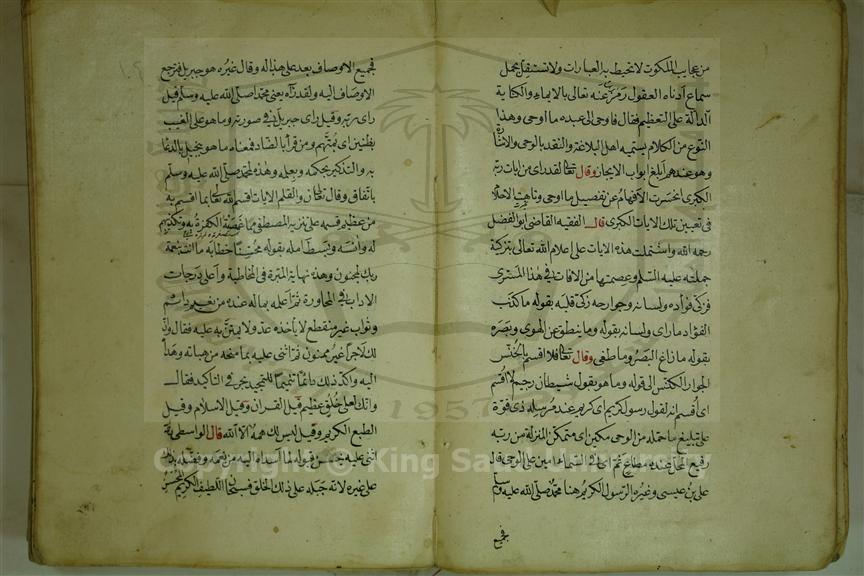 من عجايب الملكوت لا تحيط به العبارات ولا تستقل بحمل
سماع أدناه العقول رمز عنه تعالى بالايماء والكناية
الدالة على التعظيم فقال فاوحى الى عبده ما اوحى وهذا
النوع من الكلام يسميه اهل البلاغة والنقد بالوحى والاشارة
وهو عندهم أبلغ ابواب الايجاز وقال تعالى لقد راى من ايات ربه
الكبرى انحسرت الافهام عن تفصيل ما اوحى وتاهت الاحلام
فى تعيين تلك الايات الكبرى قال الفقيه القاضى ابو الفضل
رحمه الله واشتملت هذه الايات على اعلام الله تعالى بتزكية
جملته عليه السلام وعصمتها من الافات فى هذا المسرى
فزكى فؤاده ولسانه وجوارحه زكى قلبه بقوله ما كذب
الفؤاد ما راى ولسانه بقوله وما ينطق عن الهوى وبصره
بقوله ما زاغ البصر وما طغى وقال تعالى فلا اقسم بالخنس
الجوار الكنس الى قوله وما هو بقول شيطان رجيم لا اقسم
اى أقسم انه لقول رسول كريم اى كريم عند مرسله ذى قوة
على تبليغ ما حمله من الوحى مكين اى متمكن المنزلة من ربه
رفيع المحل عنده مطاع ثم اى فى السماء امين على الوحى قال
على بن عيسى وغيره الرسول الكريم هنا محمد صلى الله عليه وسلم
فجميع
فجميع الاوصاف بعد على هذا له وقال غيره هو جبريل فترجع
الاوصاف اليه ولقد رآه يعنى محمدا صلى الله عليه وسلم قيل
راى ربه وقيل راى جبريل فى صورته وما هو على الغيب
بظنين اى بمتهم ومن قرأ بالضاد فمعناه ما هو ببخيل بالدعا
به والتذكير بحكمه وبعلمه وهذه لمحمد صلى الله عليه وسلم
باتفاق وقال تعالى ن والقلم الايات اقسم الله تعالى بما اقسم به
من عظيم قسمه على تنزيه المصطفى مما غمصته الكفرة به وتكذيبهم
له وانسه وبسط امله بقوله محسنا خطابه ما انت بنعمة
ربك بمجنون وهذه نهاية المبرة فى المخاطبة واعلى درجات
الاداب فى المحاورة ثم اعلمه بما له عنده من نعيم دائم
وثواب غير منقطع لا يأخذه عد ولا يمتن به عليه فقال وان
لك لاجرا غير ممنون ثم اثنى عليه بما منحه من هباته وهداه
اليه واكد ذلك تتميما للتمجيد بحرفى التاكيد فقال
وانك لعلى خلق عظيم قيل القران وقيل الاسلام وقيل
الطبع الكريم وقيل ليس لك همة الا الله قال الواسطى
اثنى عليه بحسن قبوله لما أسداه اليه من نعمه وفضله بذلك
على غيره لانه جبله على ذلك الخلق فسبحان اللطيف الكريم المحسن
1957
Copyright © King Saud University